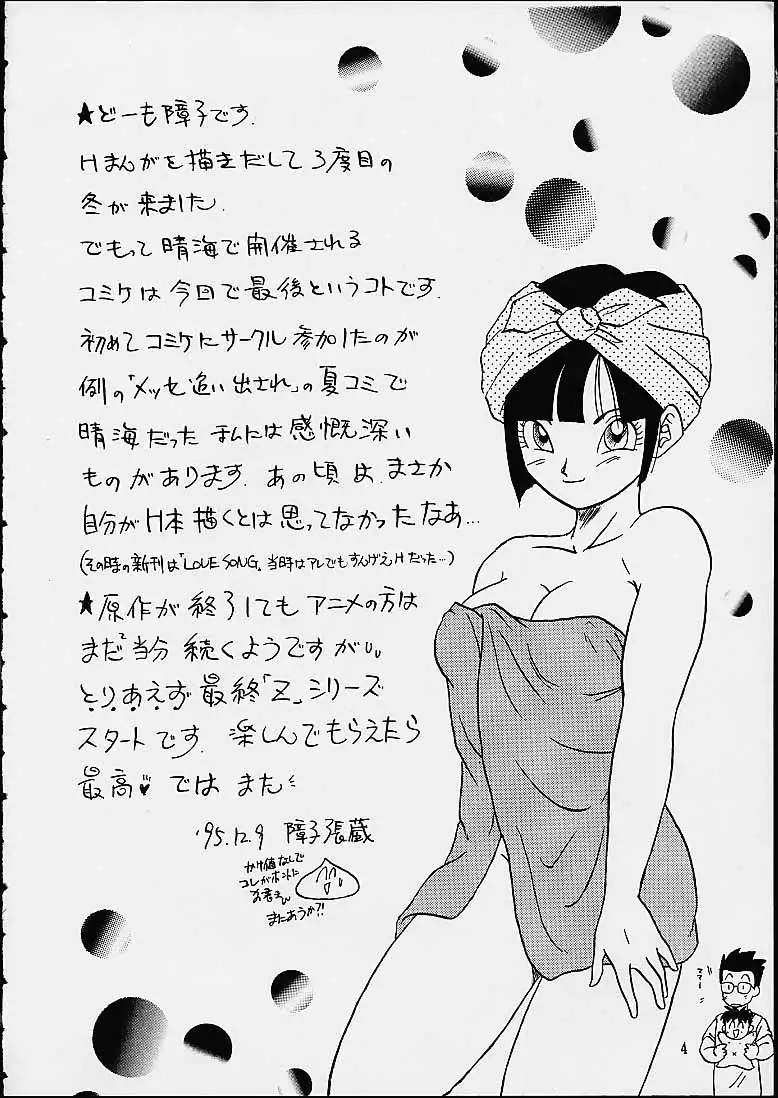 ★どーも障子です.
Hまんがを描きだして3度目の
冬が来ました.
でもって晴海で開催される
コミケは今回で最後というコトです.
初めてコミケにサークル参加したのが
例の「メッセ追い出され」の夏コミで
晴海だった
には感慨深い
ものがあります. あの頃は、まさか
自分がH本描くとは思ってなかったなあ…
(その時の新刊は「LOVE SONG」当時はアレでもすんげえHだった…)
★原作が終了してもアニメの方は
まだ当分続くようですが
とりあえず最終「Z」シリーズ
スタートです. 楽しんでもらえたら
最高♥ では また
'95.12.9 障子張蔵
かけ値なしで
コレがホントに
またあうか?!
4